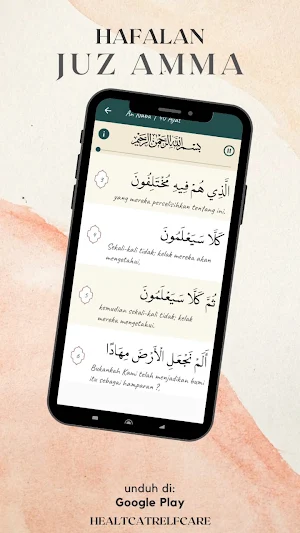 HAFALAN
JUZ AMMA
An Naba | 40 Ayat
بِسْمِ اللَّهِ الرَّحْمَٰنِ الرَّحِيمِ
الَّذِي هُمْ فِيهِ مُخْتَلِفُونَ
3
yang mereka perselisihkan tentang ini.
كَلَّا سَيَعْلَمُونَ
4
Sekali-kali tidak; kelak mereka akan
mengetahui,
ثُمَّ كَلَّا سَيَعْلَمُونَ
5
kemudian sekali-kali tidak; kelak
mereka mengetahui.
أَلَمْ نَجْعَلِ الْأَرْضَ مِهَادًا
6
Bukankah Kami telah menjadikan bumi
itu sebagai hamparan ?,
unduh di:
Google Play
HEALTCATRELFCARE